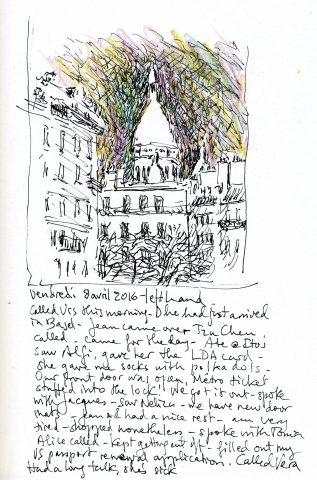 vendredi 8 avril 2016 - left hand
Called Urs this morning - he had just arrived
in Basel - Jean came over Tzu Chen
called - came for the day - Ate @ Ito's
saw Alfi, gave her the LDA card -
she gave me socks with polka dots -
Our front door was open, Métro ticket
stuffed into the lock! We got it out - spoke
with Jacques - saw Neliza - we have new door
mats - Jean & I had a nice rest - am very
tired - shopped nonetheless - spoke with
Alice called - kept getting cut off - filled out my
US passport renewal application. Called Vera
Had a long talk, she's sick